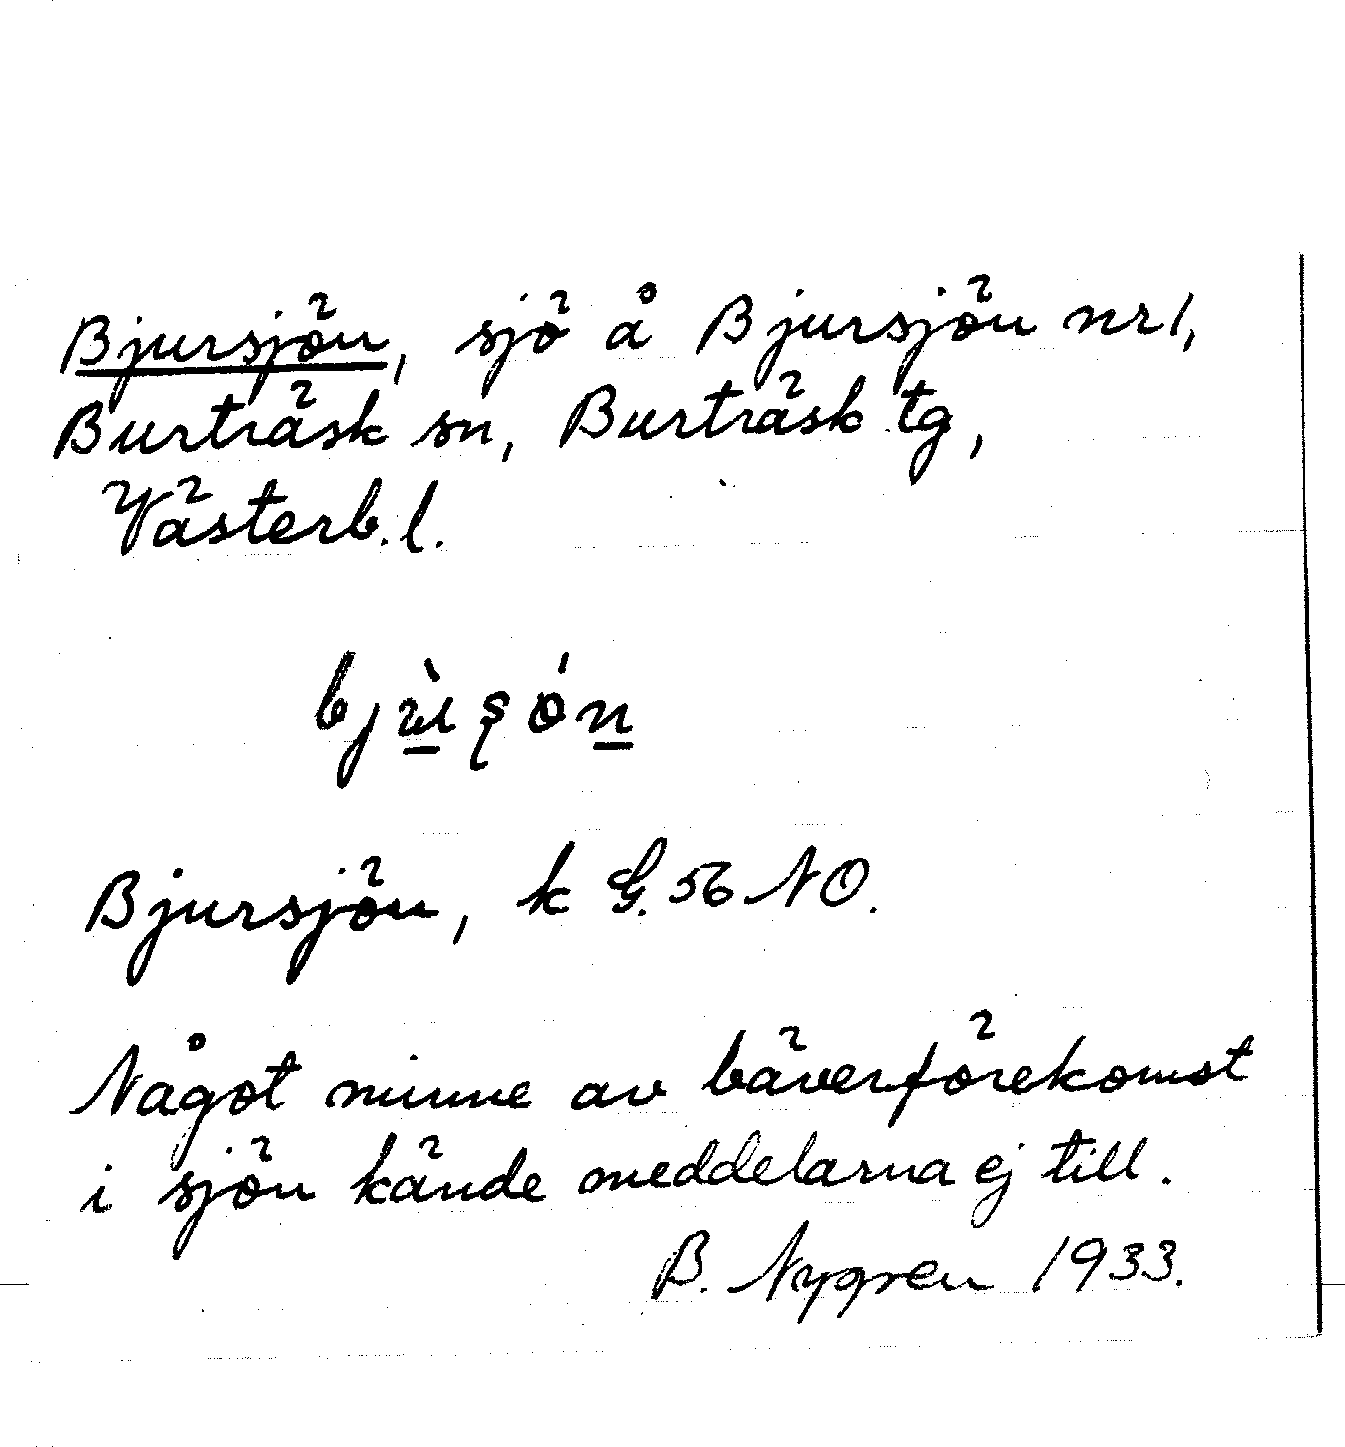 Bjursjön, sjö å Bjursjön nr 1,
Burträsk sn, Burträsk tg,
Västerb. l.
Bjursjön, k G. 56 NO.
Något minne av bäverförekomst
i sjön kände meddelarna ej till.
B. Nygren 1933.